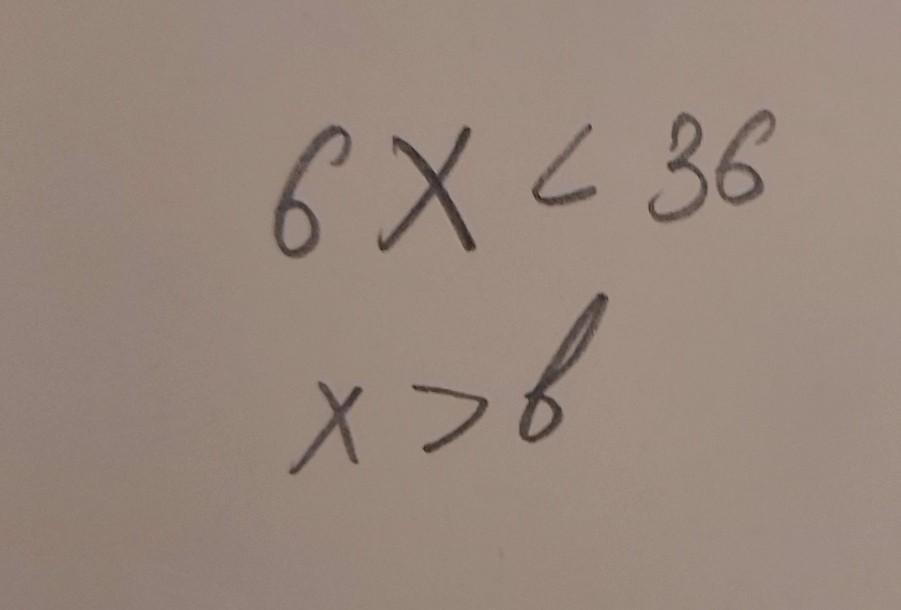 6x < 36
x > 6